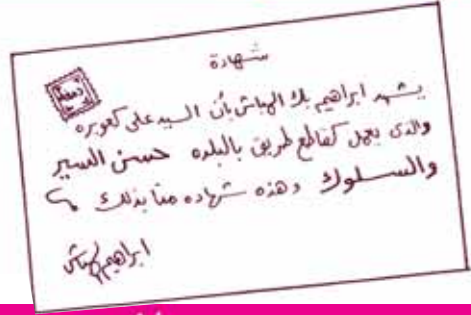 شهادة
دمغة
يشهد ابراهيم بك الهباش بأن السيد على كعوبره
والذى يعمل كقاطع طريق بالبلده حسن السير
والسلوك وهذه شهاده منا بذلك
ابراهيم الهباش